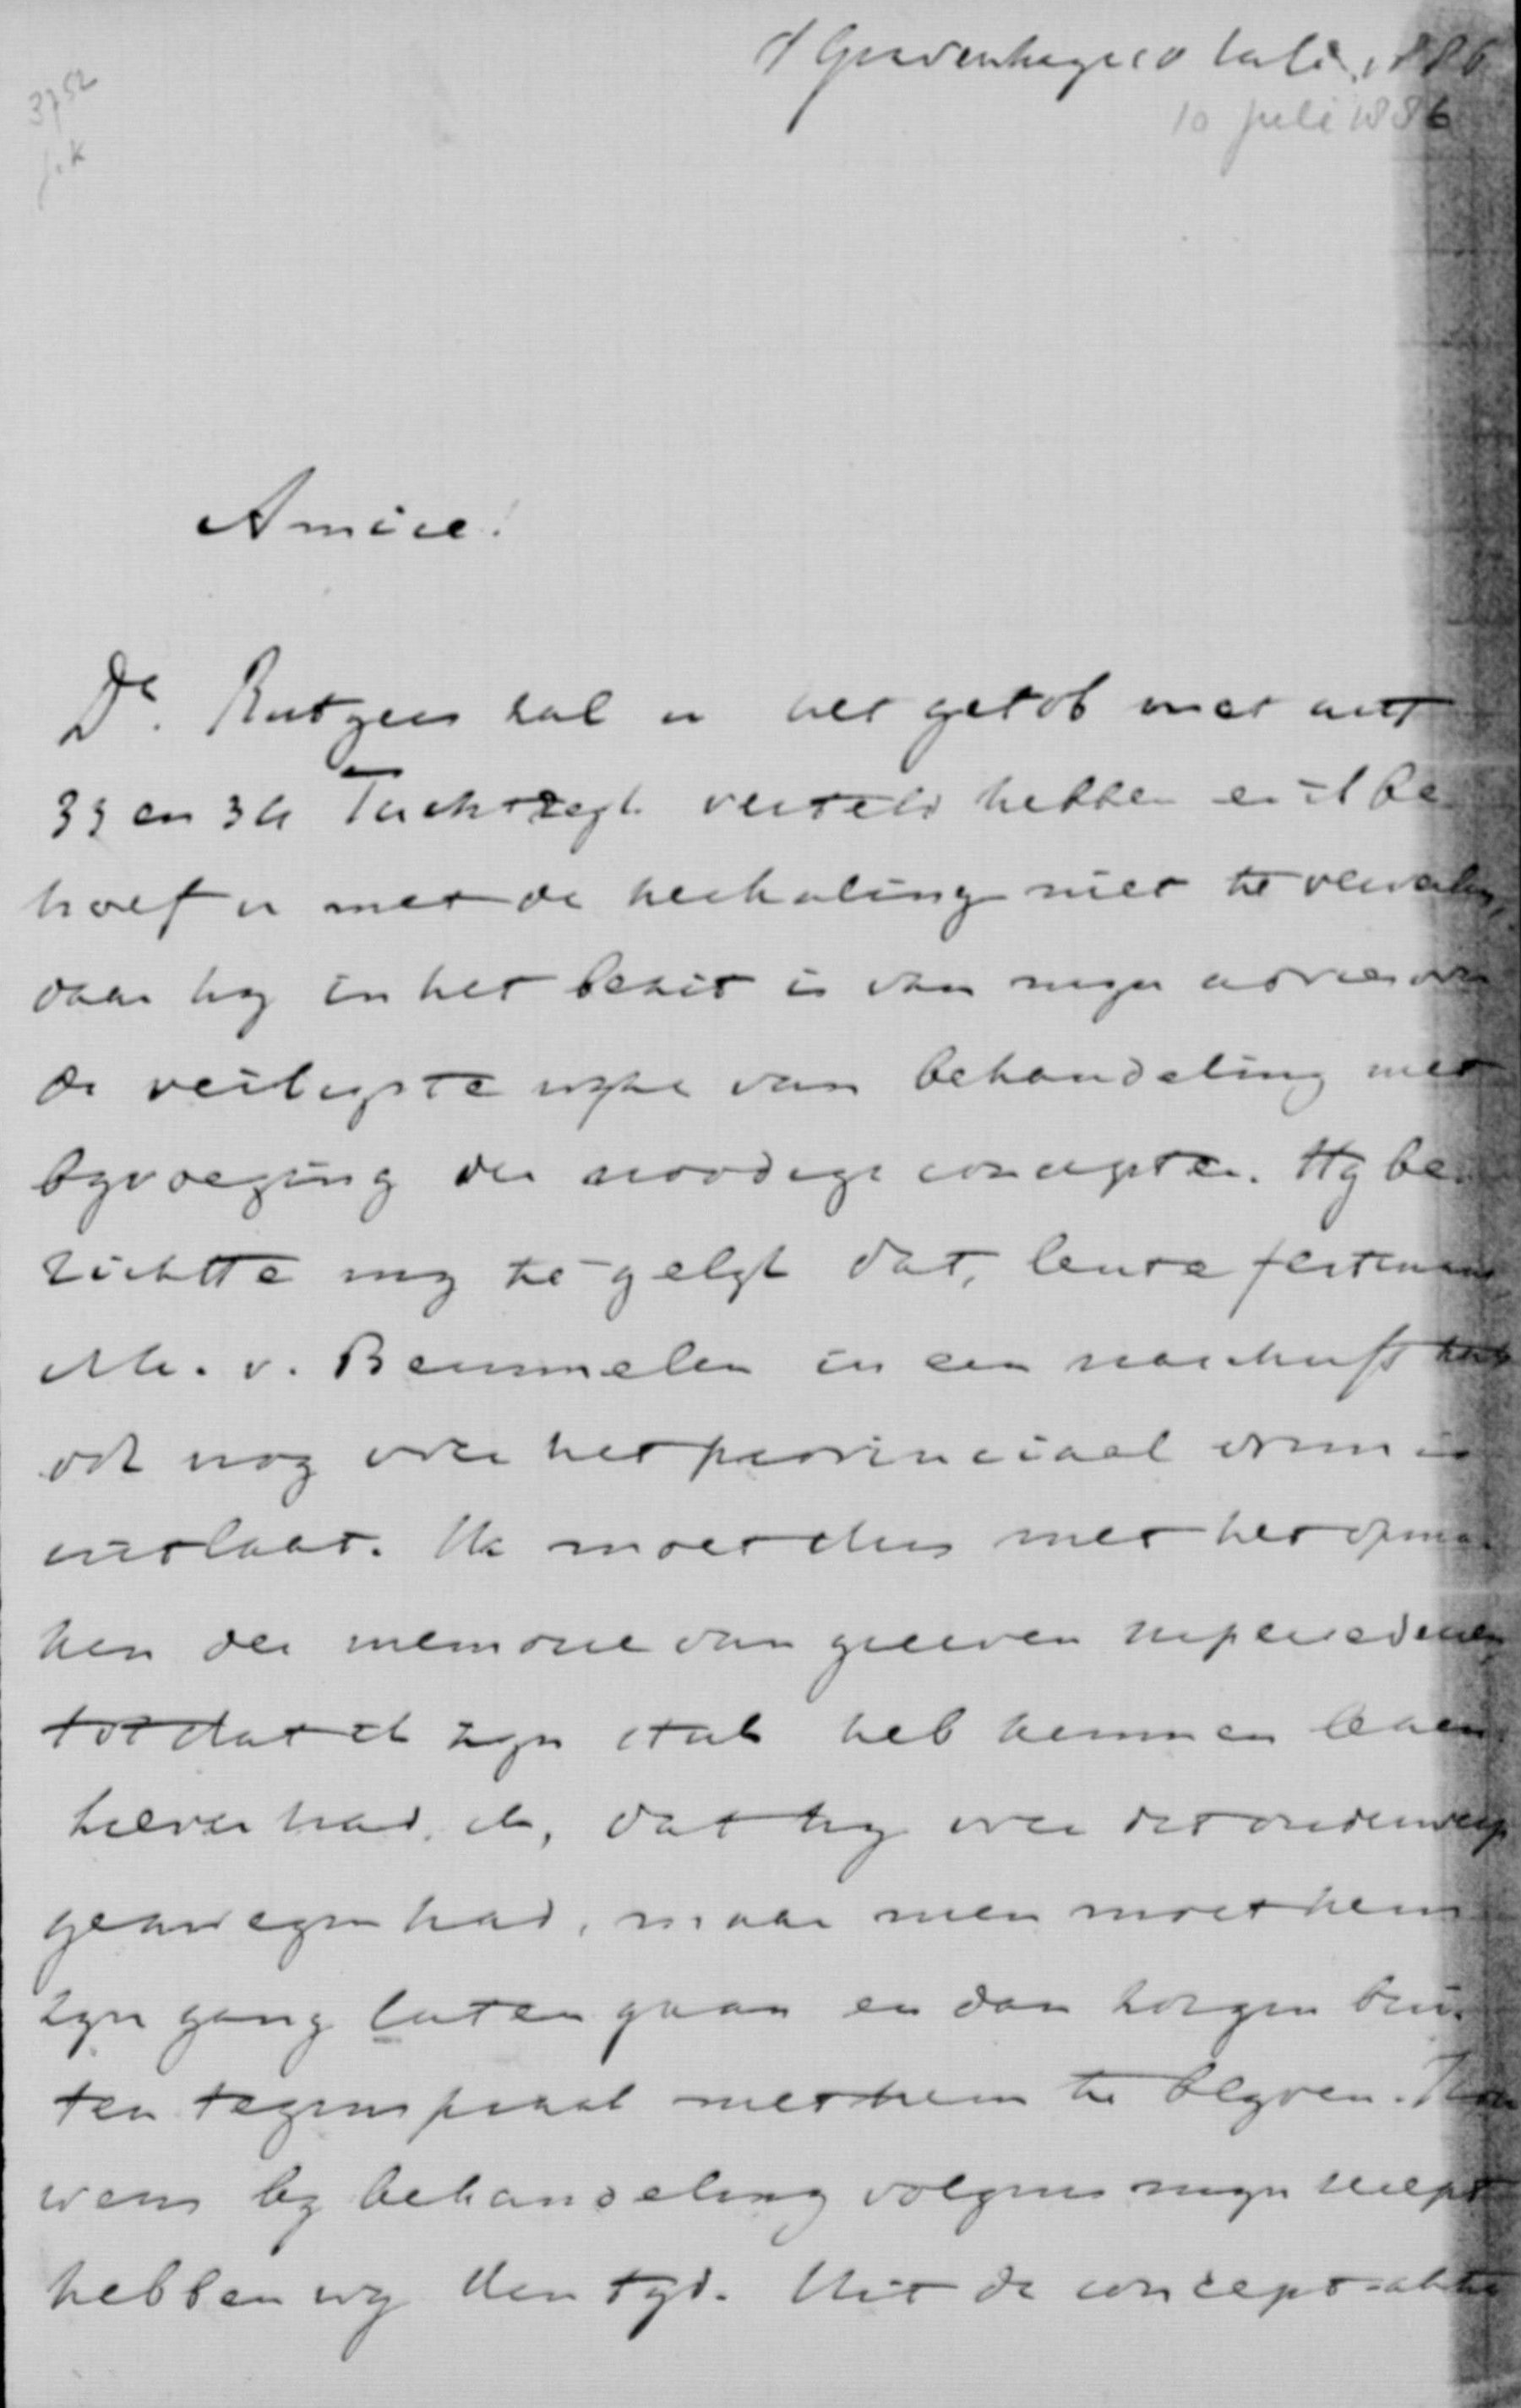 's Gravenhage 10 Juli 1886
10 juli 1886
3752
Amice!
Dr. Rutgers zal u het getob met artt
33 en 34 Tuchtregl. verteld hebben en ik be
hoef u met de herhaling niet te vervelen,
daar hy in het bezit is van myn advies over
de veiligste wyze van behandeling met
byvoeging der noodige concepten. Hy be
richtte my te-gelyk dat, lente festinans,
Mr. v. Bemmelen in een naschrift zich
ook nog over het provinciaal
uitlaat. Ik moet dus met het opma
ken der memorie van grieven supersedeeren,
totdat ik zyn stuk heb kunnen lezen.
Liever had ik, dat hy over dit onderwerp
gezwegen had, maar men moet hem
zyn gang laten gaan en dan zorgen bui
ten tegenspraak met hem te blyven. Trou
wens by behandeling volgens myn recept
hebben wy den tyd. Uit de concept-akte